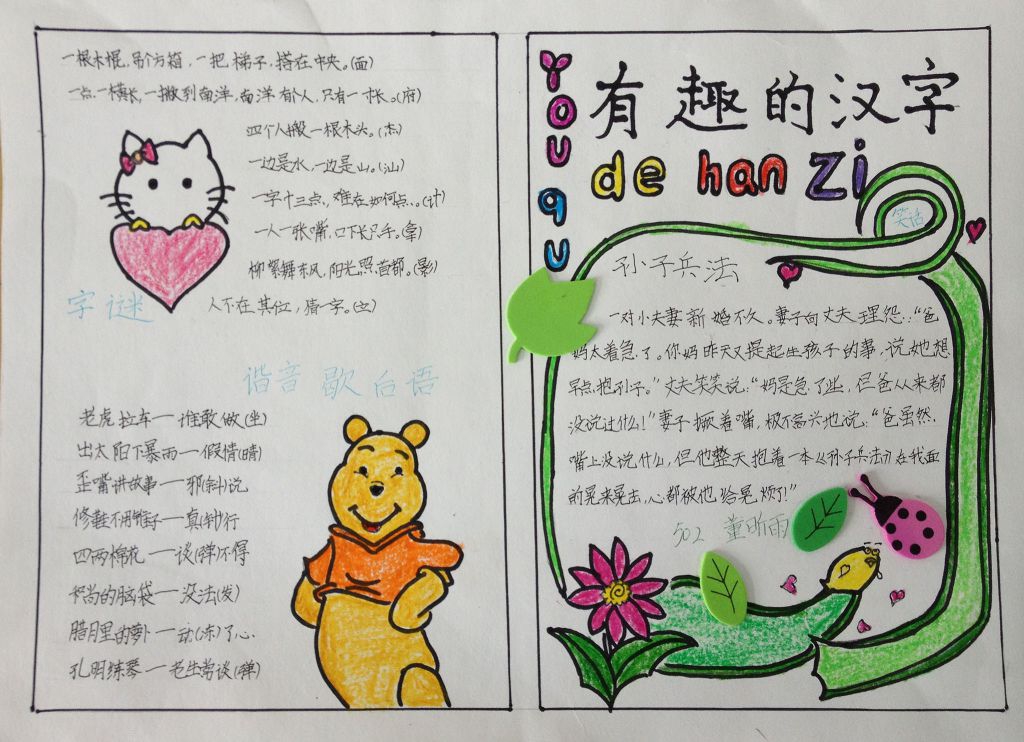 一根木棍,吊个方箱,一把梯子,搭在中央。(面)
一点一横长,一撇到南洋,南洋有个人,只有一寸长。(府)
四个人搬一根木头。(杰)
一边是水,一边是山。(汕)
一字十三点,难在如何点。(汁)
一人一张嘴,口下长只手。(拿)
柳絮舞东风,阳光照首都。(影)
人不在其位,猜一字。(立)
字谜
谐音歇后语
老虎拉车—谁敢做(坐)
出太阳下暴雨—假情(晴)
歪嘴讲故事—邪(斜)说
修鞋不用锥子—真(针)行
四两棉花—谈(弹)不得
和尚的脑袋—没法(发)
腊月里的萝卜—动(冻)了心
孔明练琴—老生常谈(弹)
You qu
有趣的汉字
de han zi
笑话
孙子兵法
一对小夫妻新婚不久。妻子向丈夫埋怨:“爸
妈太着急了。你妈昨天又提起生孩子的事,说她想
早点抱孙子。”丈夫笑笑说:“妈是急了些,但爸从来都
没说过什么!”妻子撅着嘴,极不高兴地说:“爸虽然
嘴上没说什么,但他整天抱着一本《孙子兵法》在我面
前晃来晃去,心都被他给晃烦了!”
502 董昕雨